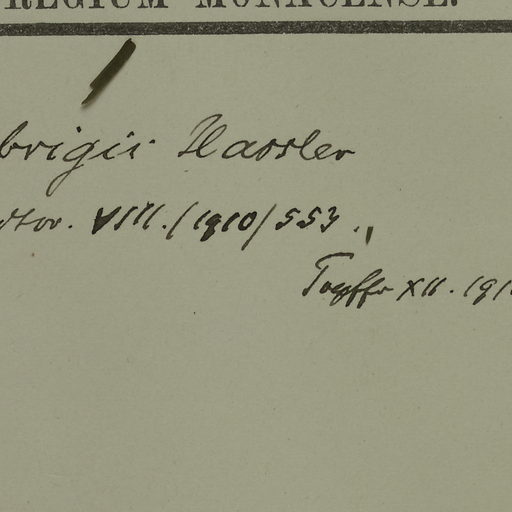 REGIUM MONACENSE.
brigii Hassler
dtor. VIII. (1910) 553.,
Toepffr XII. 191